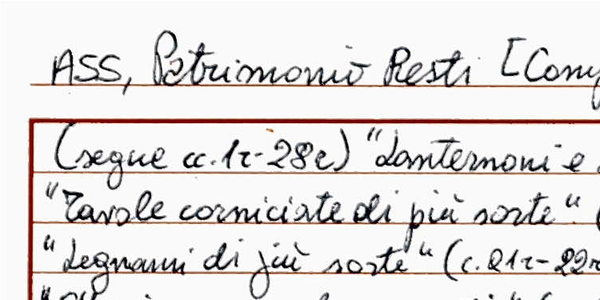 ASS, Patrimonio Resti [Com
(segue cc. 1r-28r) "Lanternoni e
"Tavole corniciate di più sorte" (
"Legnami di più sorte" (c. 21r-22r